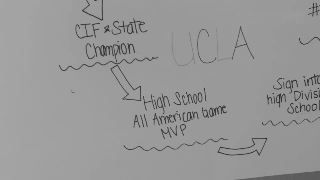 #
CIF & State
Champion
UCLA
High School
All American Game
MVP
Sign int
high Divis
School